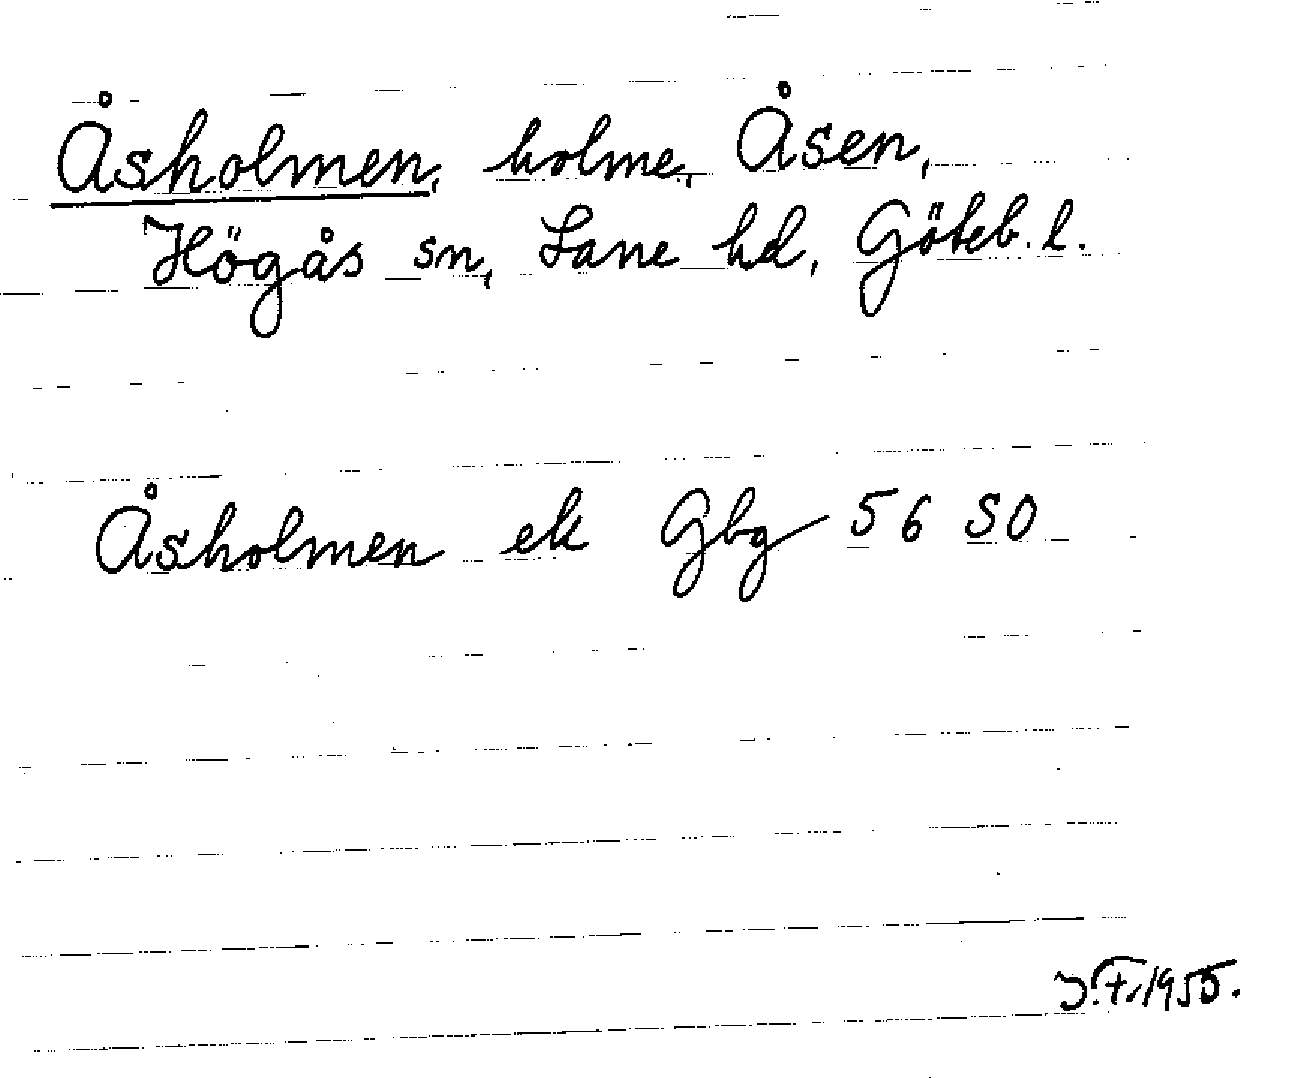 Åsholmen, holme, Åsen,
Högås sn, Lane hd, Göteb. l.
Åsholmen ek Gbg 56 SO
J.F. 1955.